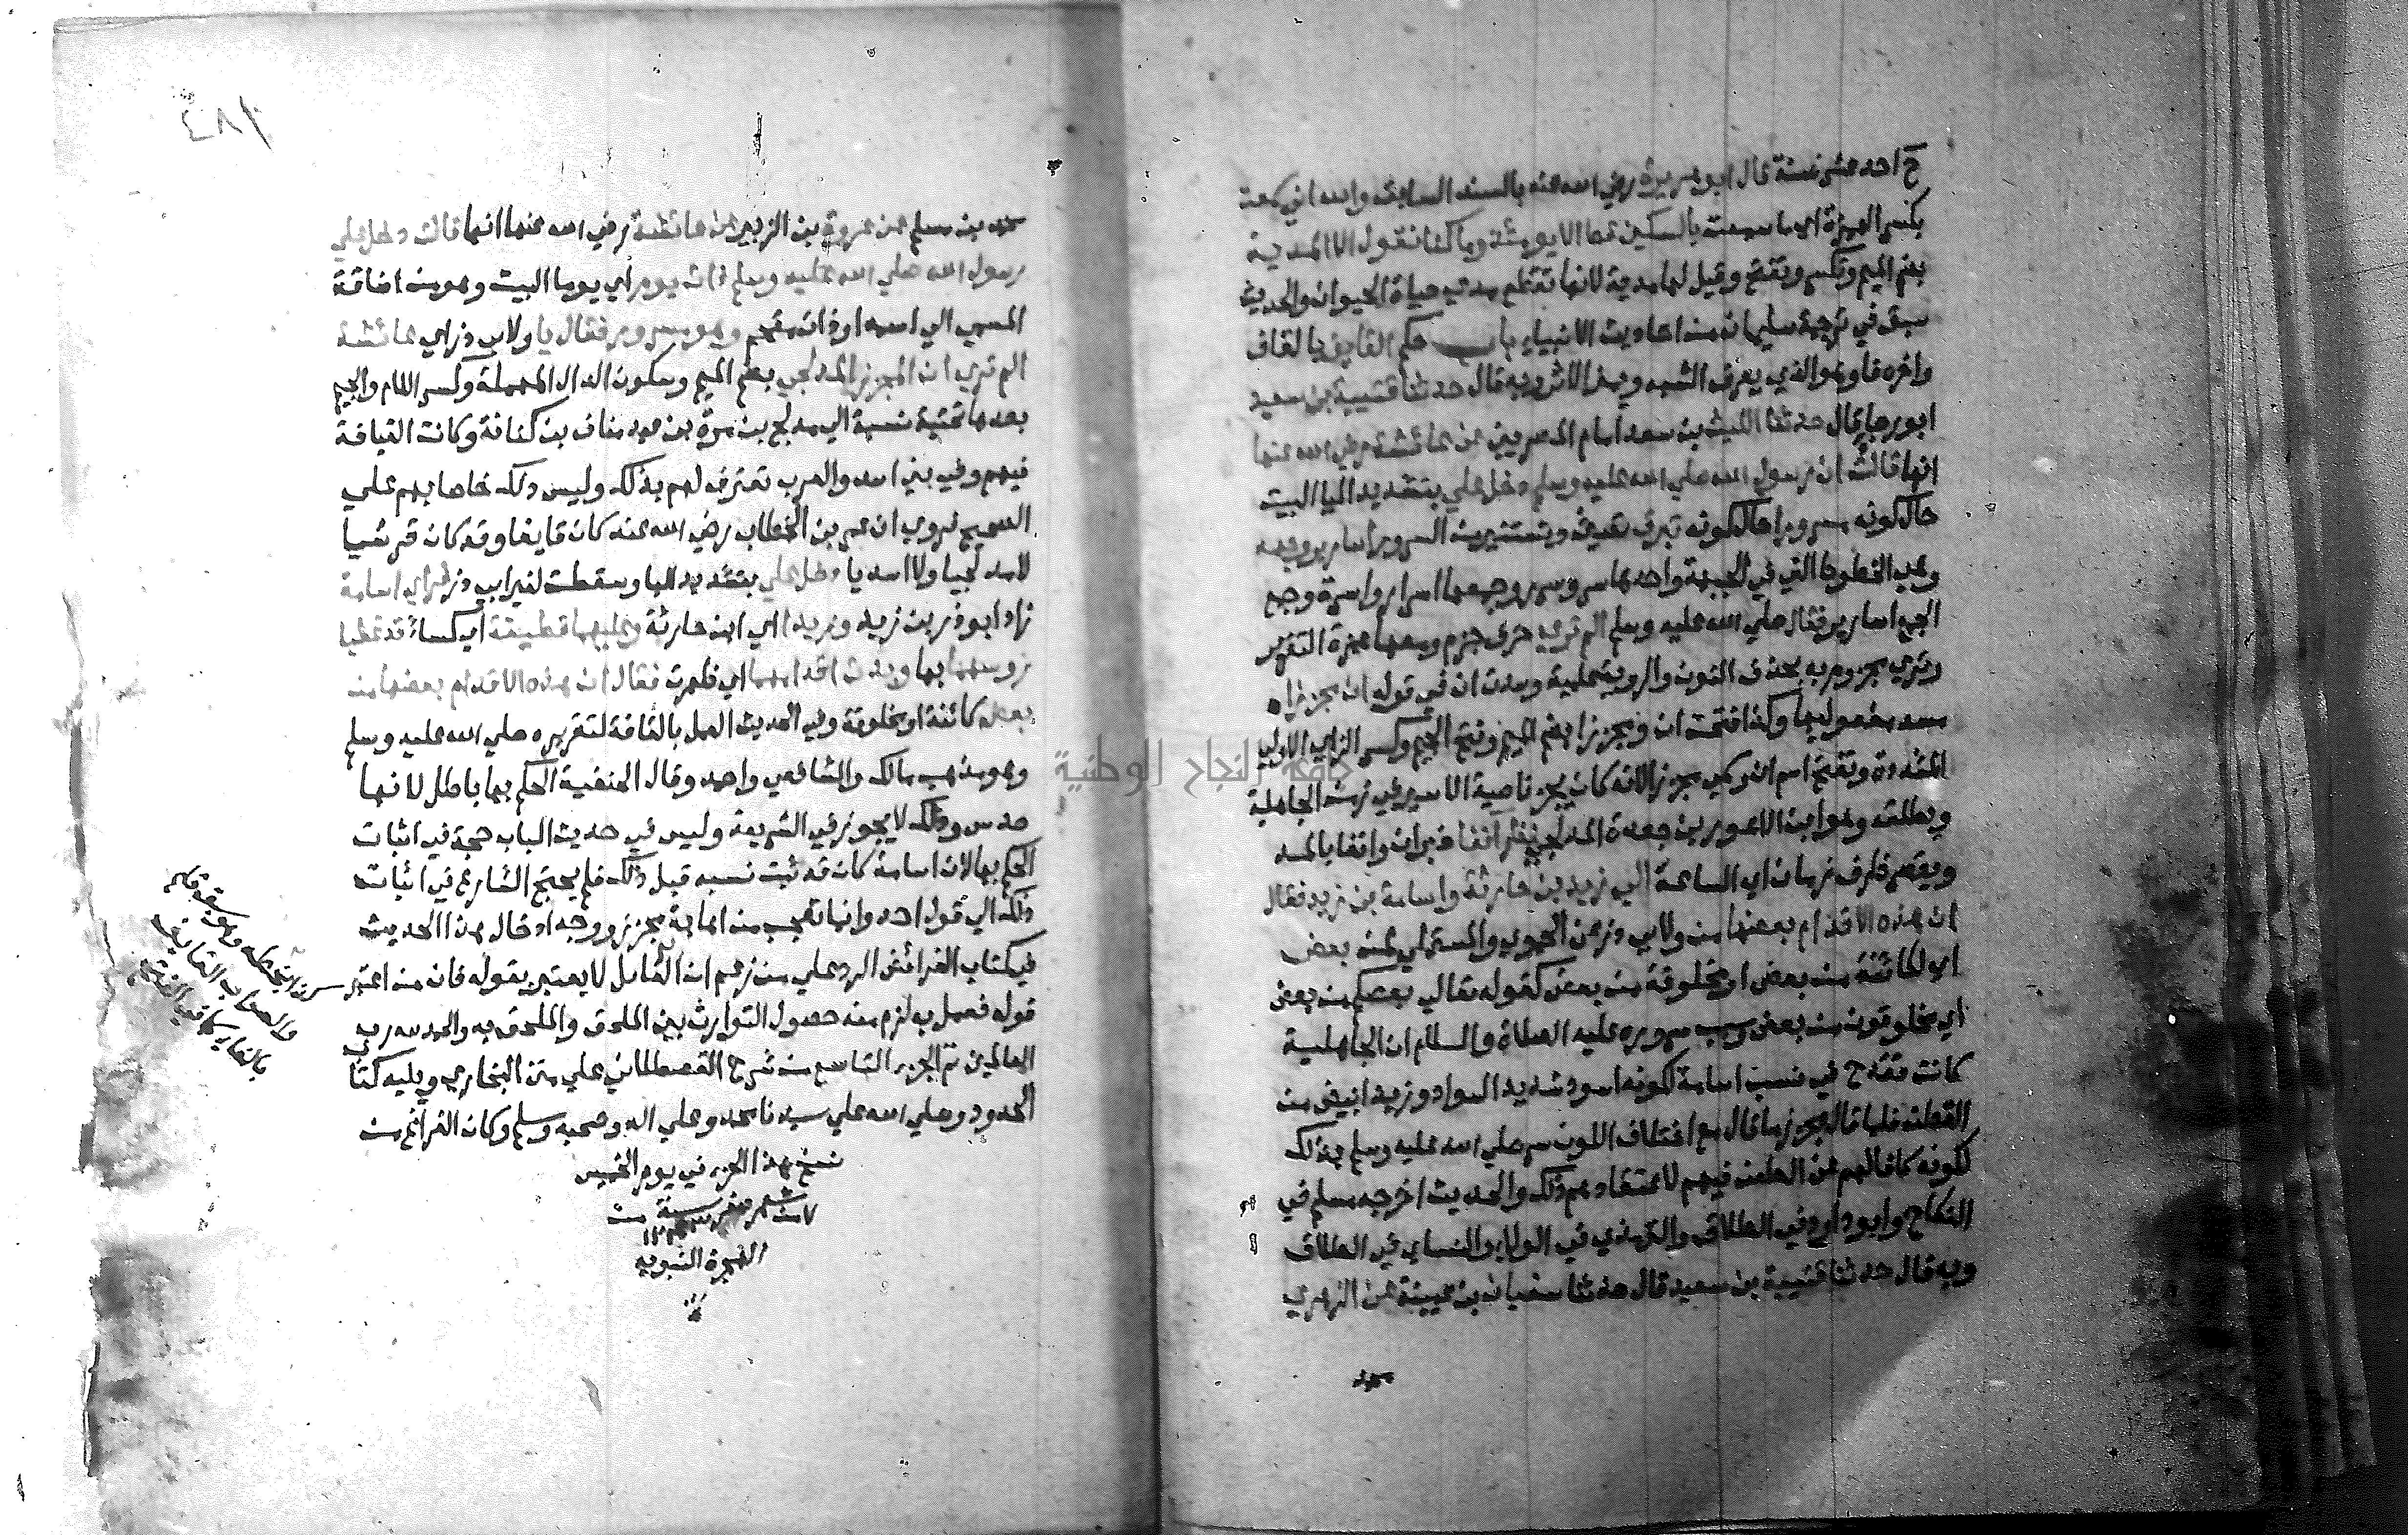 ح احد عشر سنة قال ابو هريرة رضي الله عنه بالسند السابق والله ان سمعت
بكسر الهمزة اي ما سمعت بالسكين قط الا يومئذ وما كنا نقول الا المدية
بضم الميم وتكسر وتفتح وقيل لها مدية لانها تقطع مدى حياة الحيوان والحديث
سبق في ترجمة سليمان من احاديث الانبياء باب حكم القايف بالقاف
واخره فا وهو الذي يعرف الشبه ويميز الاثر وبه قال حدثنا قتيبة بن سعيد
ابو رجا قال حدثنا الليث بن سعد امام المصريين عن عائشة رضي الله عنها
انها قالت ان رسول الله صلي الله عليه وسلم دخل علي بتشديد اليا البيت
حال كونه مسرورا حال كونه تبرق تضيئ وتستنير من السرور اسارير وجهه
وهي الخطوط التي في الجبهة واحدها سر وسرر وجمعها اسرار واسرة وجمع
الجمع اسارير فقال صلي الله عليه وسلم الم تري حرف جزم ومعها همزة التقرير
وتري مجزوم به بحذف النون والروية علمية وسدت ان في قوله ان مجززا
مسد مفعوليها وكذا فتحت ان ومجززا بضم الميم وفتح الجيم وكسر الزاي الاولي
المشددة وتفتح اسم ان وسمي مجززا لانه كان يجز ناصية الاسير في زمن الجاهلية
ويطلقه وهو ابن الاعور بن جعدة المدلجي نظر انفا ظرف ان وانفا بالمد
ويقصر ظرف زمان اي الساعة الي زيد بن حارثة واسامة بن زيد فقال
ان هذه الاقدام بعضها من ولابي ذر عن الحموي والمستملي لمن بعض
اي كائنة من بعض او مخلوقة من بعض كقوله تعالي بعضكم من بعض
اي مخلوقون من بعض وسبب سروره عليه الصلاة والسلام ان الجاهلية
كانت تقدح في نسب اسامة لكونه اسود شديد السواد وزيد ابيض من
القطن فلما قال مجزز ما قال مع اختلاف اللون سر صلي الله عليه وسلم بذلك
لكونه كافا لهم عن الطعن فيهم لاعتقادهم ذلك والحديث اخرجه مسلم في
النكاح وابو داود في الطلاق والترمذي في الولاء والنساي في الطلاق
وبه قال حدثنا قتيبة بن سعيد قال حدثنا سفيان بن عيينة عن الزهري
محمد
١٨٤
محمد بن مسلم عن عروة بن الزبير عن عائشة رضي الله عنها انها قالت دخل علي
رسول الله صلي الله عليه وسلم ذات يوم اي يوما البيت وهو من اضافة
المسمي الي اسمه او ذات مقحم وهو مسرور فقال يا ولابي ذر اي عائشة
الم تري ان المجزز المدلجي بضم الميم وسكون الدال المهملة وكسر اللام والجيم
بعدها تحتية نسبة الي مدلج بن مرة بن عبد مناف بن كنانة وكانت القيافة
فيهم وفي بني اسد والعرب تعترف لهم بذلك وليس ذلك خاصا بهم علي
الصحيح فروي ان عمر بن الخطاب رضي الله عنه كان قايفا وقد كان قرشيا
لا مدلجيا ولا اسديا دخل علي بتشديد اليا وسقطت لغير ابي ذر فراي اسامة
زاد ابو ذر بن زيد وزيدا اي ابن حارثة وعليهما قطيفة اي كساء قد غطيا
روسهما بها وبدت اقدامهما اي ظهرت فقال ان هذه الاقدام بعضها من
بعض كائنة او مخلوقة وفي الحديث العمل بالقافة لتقريره صلي الله عليه وسلم
وهو مذهب مالك والشافعي واحمد وقال الحنفية الحكم بها باطل لانها
حدس وذلك لا يجوز في الشريعة وليس في حديث الباب حجة في اثبات
الحكم بها لان اسامة كان قد ثبت نسبه قبل ذلك فلم يحتج الشارع في اثبات
ذلك الي قول احد وانما تعجب من اصابة مجزز ووجه ادخال هذا الحديث
في كتاب الفرائض الرد علي من زعم ان القائل لا يعتبر بقوله فان من اعتبر
قوله فعمل به لزم منه حصول التوارث بين الملحق والملحق به والحمد لله رب
العالمين تم الجزء التاسع من شرح القسطلاني علي متن البخاري ويليه كتاب
الحدود وصلي الله علي سيدنا محمد وعلي اله وصحبه وسلم وكان الفراغ من
نسخ هذا الجزء في يوم الخميس
شهر صفر سنة من
الهجرة النبوية
والصواب القايف
جامعة النجاح الوطنية